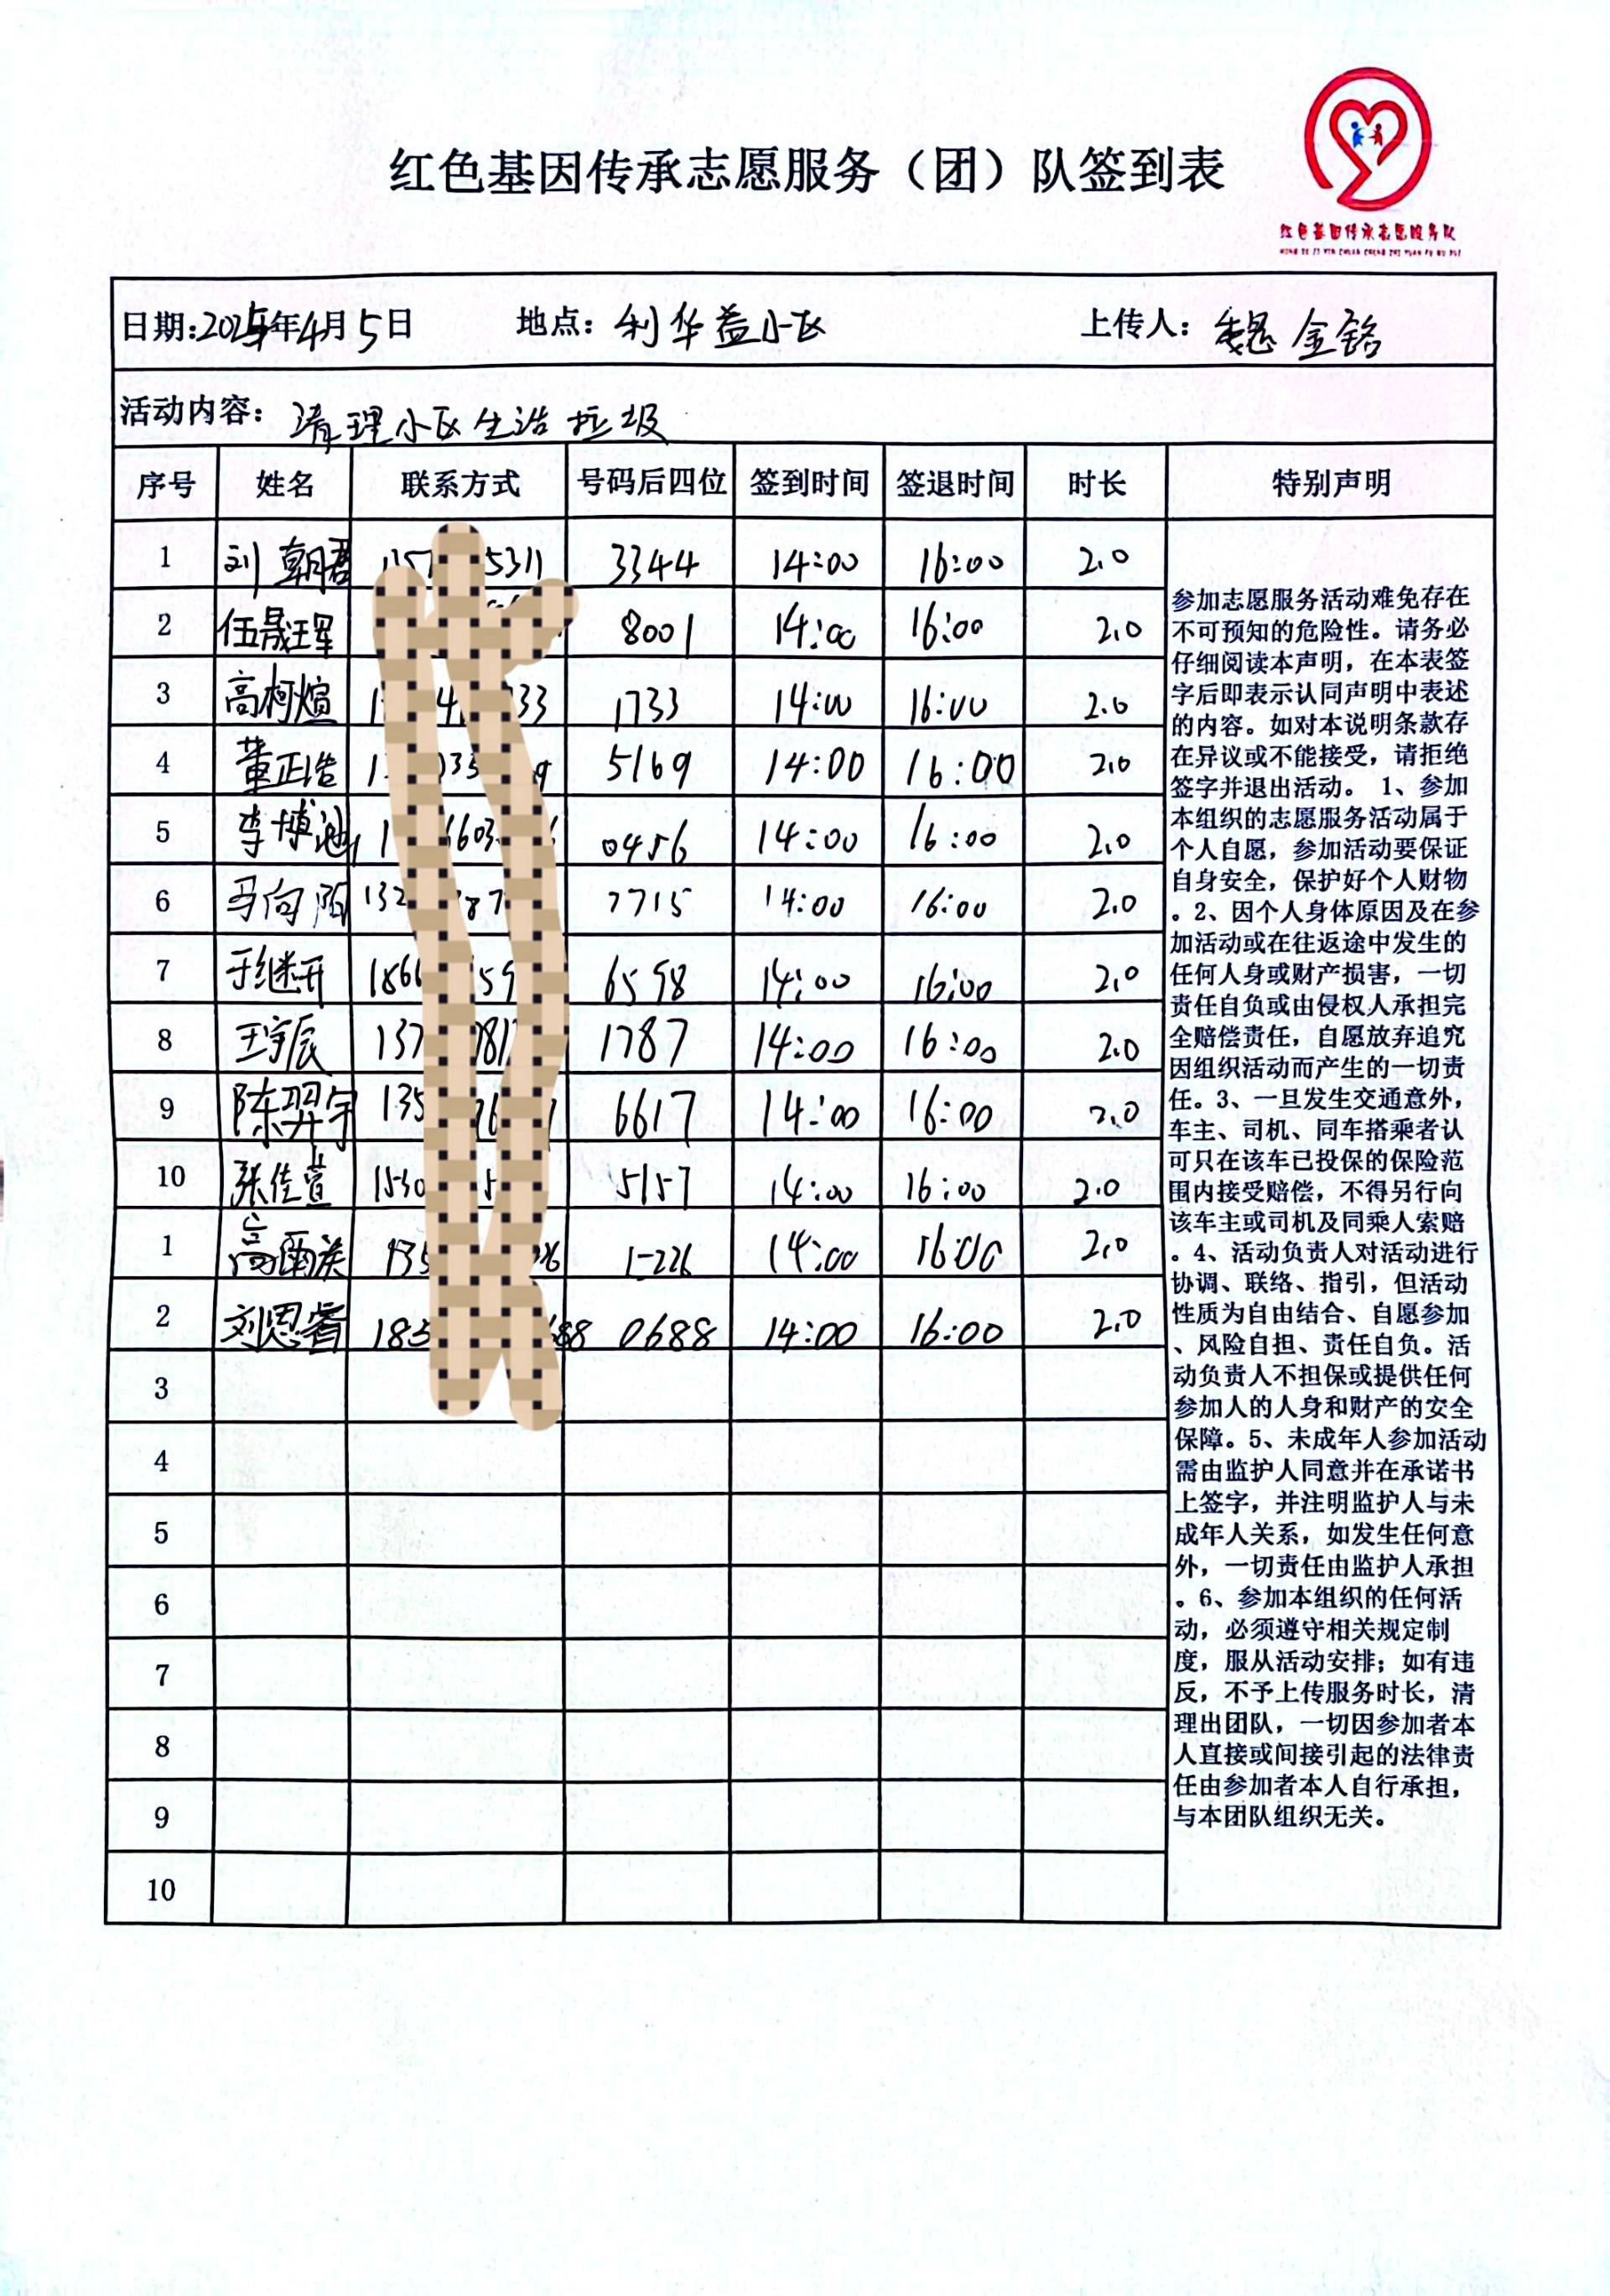 红色基因传承志愿服务（团）队签到表
红色基因传承志愿服务队
HONG SE JI YIN CHUAN CHENG ZHI YUAN FU WU DUI
日期:2025年4月5日 地点：利华益小区 上传人：魏金铭
活动内容：清理小区生活垃圾
序号 姓名 联系方式 号码后四位 签到时间 签退时间 时长 特别声明
1 刘朝君 5311 3344 14:00 16:00 2.0
2 伍晟玮 8001 14:00 16:00 2.0
3 高柯煊 1 4 33 1733 14:00 16:00 2.0
4 董正浩 1 035 9 5169 14:00 16:00 2.0
5 李博 1 6603 6 0456 14:00 16:00 2.0
6 马向阳 132 87 7715 14:00 16:00 2.0
7 于继开 186 59 6598 14:00 16:00 2.0
8 王宇辰 137 781 1787 14:00 16:00 2.0
9 陈羿宇 135 6 6617 14:00 16:00 2.0
10 张佳萱 1530 5 5157 14:00 16:00 2.0
1 高 135 26 5226 14:00 16:00 2.0
2 刘恩睿 185 688 0688 14:00 16:00 2.0
3
4
5
6
7
8
9
10
参加志愿服务活动难免存在
不可预知的危险性。请务必
仔细阅读本声明，在本表签
字后即表示认同声明中表述
的内容。如对本说明条款存
在异议或不能接受，请拒绝
签字并退出活动。 1、参加
本组织的志愿服务活动属于
个人自愿，参加活动要保证
自身安全，保护好个人财物
。2、因个人身体原因及在参
加活动或在往返途中发生的
任何人身或财产损害，一切
责任自负或由侵权人承担完
全赔偿责任，自愿放弃追究
因组织活动而产生的一切责
任。3、一旦发生交通意外，
车主、司机、同车搭乘者认
可只在该车已投保的保险范
围内接受赔偿，不得另行向
该车主或司机及同乘人索赔
。4、活动负责人对活动进行
协调、联络、指引，但活动
性质为自由结合、自愿参加
、风险自担、责任自负。活
动负责人不担保或提供任何
参加人的人身和财产的安全
保障。5、未成年人参加活动
需由监护人同意并在承诺书
上签字，并注明监护人与未
成年人关系，如发生任何意
外，一切责任由监护人承担
。6、参加本组织的任何活
动，必须遵守相关规定制
度，服从活动安排；如有违
反，不予上传服务时长，清
理出团队，一切因参加者本
人直接或间接引起的法律责
任由参加者本人自行承担，
与本团队组织无关。